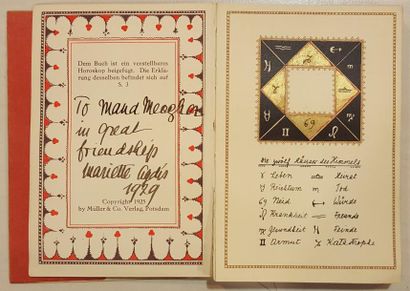 Dem Buch ist ein verstellbares
Horoskop beigefügt. Die Erklä-
rung desselben befindet sich auf
S. 3
To Maud
in great
friendship
Mariette Lydis
1929
Copyright 1925
by Müller & Co. Verlag, Potsdam
Die zwölf Häuser des Himmels
♈ Leben
♉ Reichtum ♏ Tod
69 Neid ♐ Würde
♌ Krankheit Freunde
♍ Gesundheit Feinde
♊ Armut